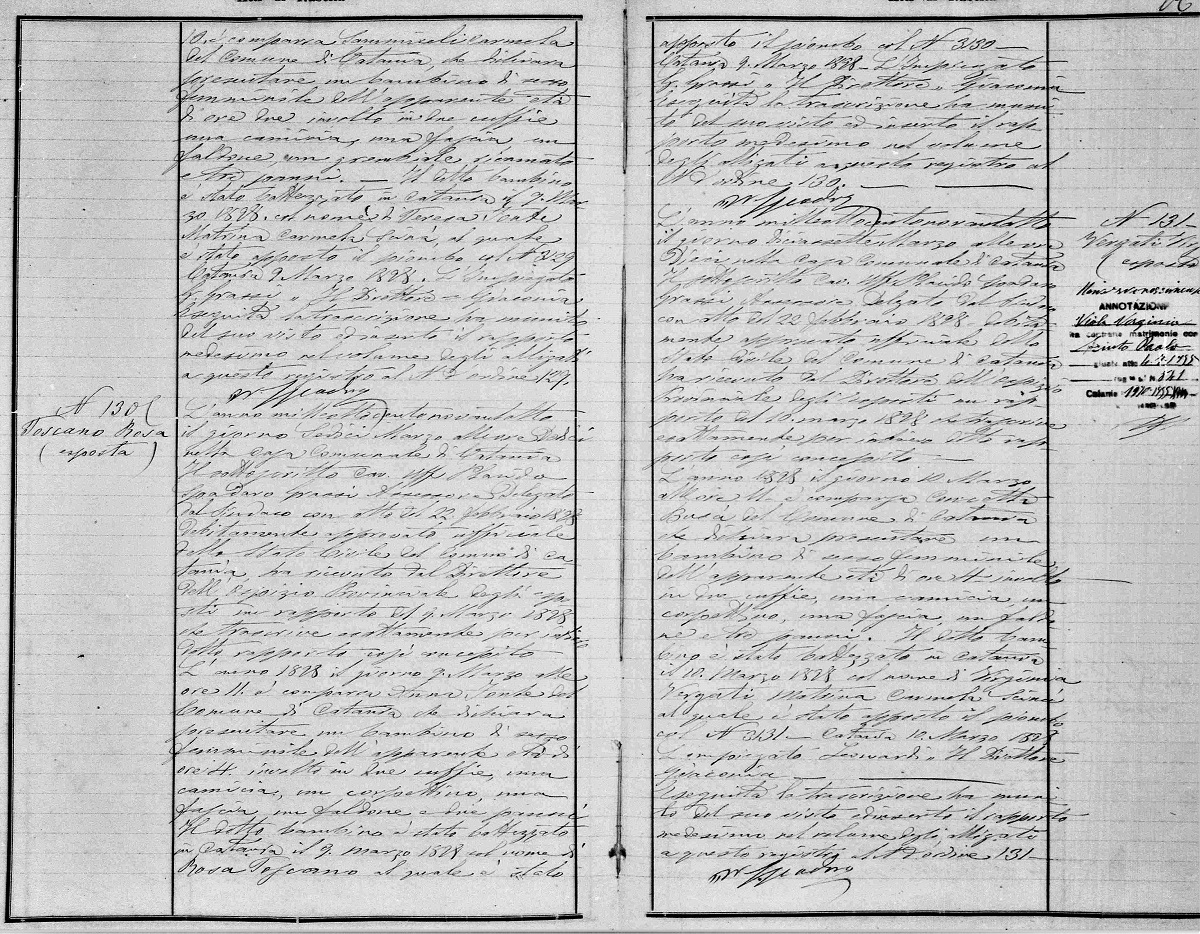 10. è comparsa Sammiceli Carmela
del Comune di Catania che dichiara
presentare un bambino di sesso
femminile dell'apparente età
di ore due involto in due cuffie
una camicia, una fascia, un
faldone, un grembiale ricamato
e tre panni. — Il detto bambino
è stato battezzato in Catania il 9. Mar
zo 1898. col nome di Teresa
Matrina Carmela Scinà, al quale
è stato apposto il piombo col N 3129
Catania 9 Marzo 1898. L'Impiegato
G. Grassi — Il Direttore — Giaconia
Eseguita la trascrizione ha munito
del suo visto ed inserto il rapporto
medesimo nel volume degli allegati
a questo registro al N. d'ordine 129.
N 130
Toscano Rosa
(esposta)
L'anno milleottocentonovantotto
il giorno Sedici Marzo alle ore Dodici
nella casa Comunale di Catania
Il sottoscritto Cav. Uff. Placido
Spadaro Grassi Assessore Delegato
dal Sindaco con atto del 22 febbraio 1898
debitamente approvato ufficiale
dello Stato Civile del Comune di Ca
tania, ha ricevuto dal Direttore
dell'Ospizio Provinciale degli espo
sti un rapporto del 9. Marzo 1898
che trascrive esattamente per intiero
detto rapporto così concepito
L'anno 1898 il giorno 9. Marzo alle
ore 11. è comparsa Anna Fonte del
Comune di Catania che dichiara
presentare un bambino di sesso
femminile dell'apparente età di
ore 4. involto in due cuffie, una
camicia, un corpettino, una
fascia, un faldone e due panni
Il detto bambino è stato battezzato
in Catania il 9. marzo 1898 col nome di
Rosa Toscano al quale è stato
apposto il piombo col N 3130 —
Catania 9. Marzo 1898 — L'Impiegato
G. Grassi — Il Direttore — Giaconia
Eseguita la trascrizione ha muni
to del suo visto ed inserto il rap
porto medesimo nel volume
degli allegati a questo registro al
N. d'ordine 130. —
L'anno milleottocentonovantotto
il giorno diciassette Marzo alle ore
Dieci nella casa Comunale di Catania
Il sottoscritto Cav. Uff. Placido Spadaro
Grassi Assessore Delegato dal Sindaco
con atto del 22 febbraio 1898 debita
mente approvato ufficiale dello
Stato Civile del Comune di Catania
ha ricevuto dal Direttore dell'Ospizio
Provinciale degli esposti un rap
porto del 10. marzo 1898 che trascrive
esattamente per intiero detto rap
porto così concepito —
L'anno 1898 il giorno 10 Marzo
alle ore 11. è comparsa Concetta
Buscà del Comune di Catania
che dichiara presentare un
bambino di sesso femminile
dell'apparente età di ore 4 involto
in due cuffie, una camicia un
corpettino, una fascia, un faldo
ne e tre panni. Il detto bam
bino è stato battezzato in Catania
il 10. Marzo 1898 col nome di Virginia
Vergati Matrina Carmela Scinà
al quale è stato apposto il piombo
col N 3131 — Catania 10. Marzo 1898
L'impiegato Leonardi — Il Direttore
Giaconia —
Eseguita la trascrizione ha muni
to del suo visto ed inserto il rapporto
medesimo nel volume degli allegati
a questo registro al N d'ordine 131 —
N 131
esposta
ANNOTAZIONE
Viola Virginia
ha contratto matrimonio con
Paolo
Catania